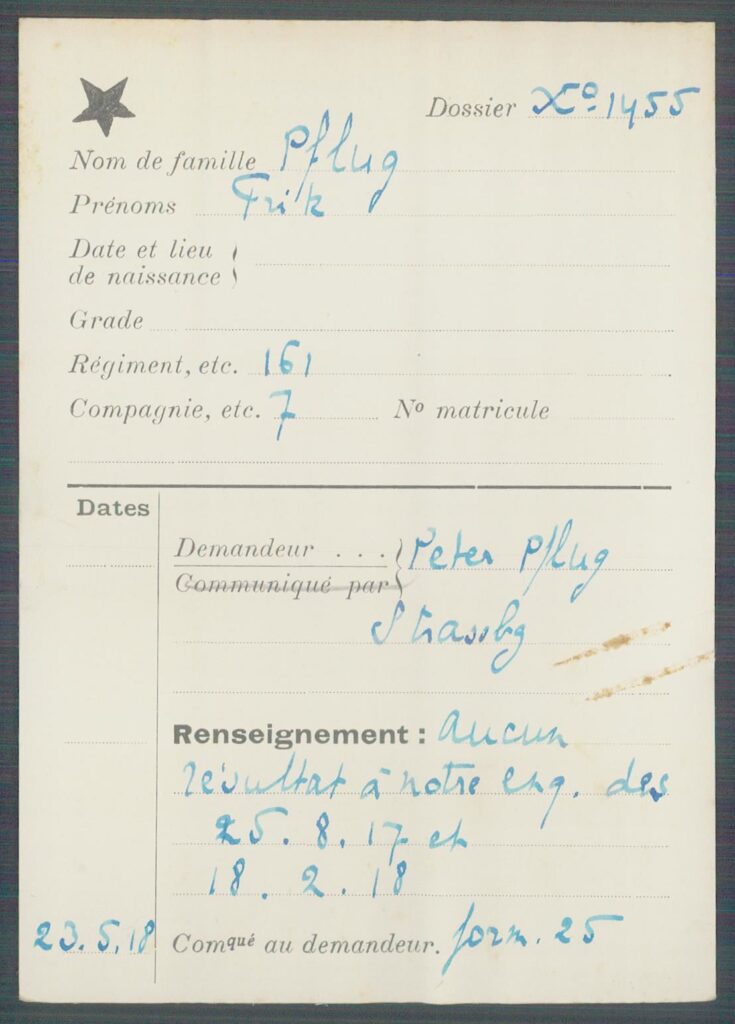 Dossier Xº 1455
Nom de famille Pflug
Prénoms Frik
Date et lieu
de naissance
Grade
Régiment, etc. 161
Compagnie, etc. 7 Nº matricule
Dates
Demandeur . . . Peter Pflug
Communiqué par
Strassbg
Renseignement : Aucun
résultat à notre enq. des
25. 8. 17 et
18. 2. 18
23.5.18 Comqué au demandeur. form. 25